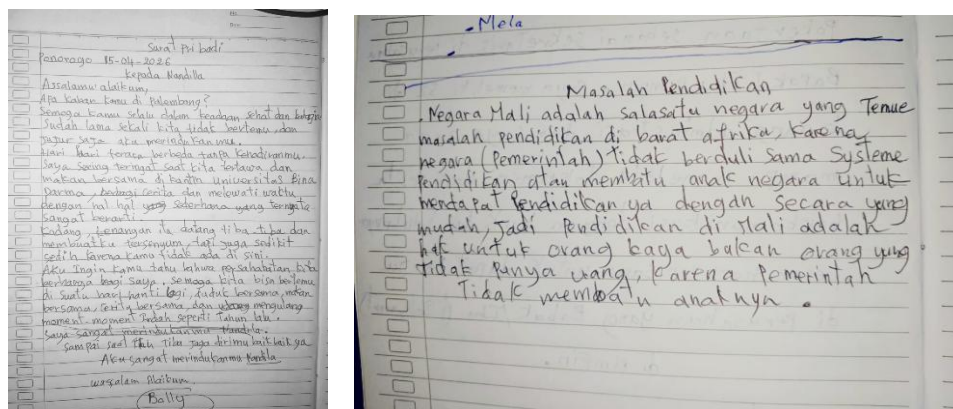 Surat Pribadi
Ponorogo 15-04-2026
Kepada Nandilla
Assalamu alaikum,
Apa kabar kamu di palembang?
Semoga kamu selalu dalam keadaan sehat dan bahagia
Sudah lama sekali kita tidak bertemu, dan
jujur saja aku merindukanmu.
Hari Hari terasa berbeda tanpa kehadiranmu.
Saya sering teringat saat kita tertawa dan
makan bersama di kantin universitas Bina
Darma, berbagi cerita dan melewati waktu
dengan hal hal yang sederhana yang ternyata
sangat berarti.
Kadang, kenangan itu datang tiba tiba dan
membuatku tersenyum, tapi juga sedikit
sedih karena kamu tidak ada di sini.
Aku Ingin kamu tahu bahwa persahabatan kita
berharga bagi saya, semoga kita bisa bertemu
di suatu hari nanti lagi, duduk bersama, makan
bersama, cerita bersama, dan mengulang
moment-moment indah seperti Tahun lalu.
Saya sangat merindukanmu Nandila.
Sampai saat itu Tiba jaga dirimu baik baik ya
Aku sangat merindukanmu Nandila
wassalam Alaikum.
Bally
• Mela
Masalah Pendidikan
Negara Mali adalah salasatu negara yang Temue
masalah pendidikan di barat afrika, Karena
negara (Pemerintah) Tidak berduli Sama Systeme
Pendidikan atau membatu anak negara untuk
mendapat Pendidikan ya dengan secara yang
mudah, Jadi Pendidikan di Mali adalah
hak untuk orang kaya bukan orang yang
Tidak Punya uang, Karena Pemerintah
Tidak membatu anaknya.